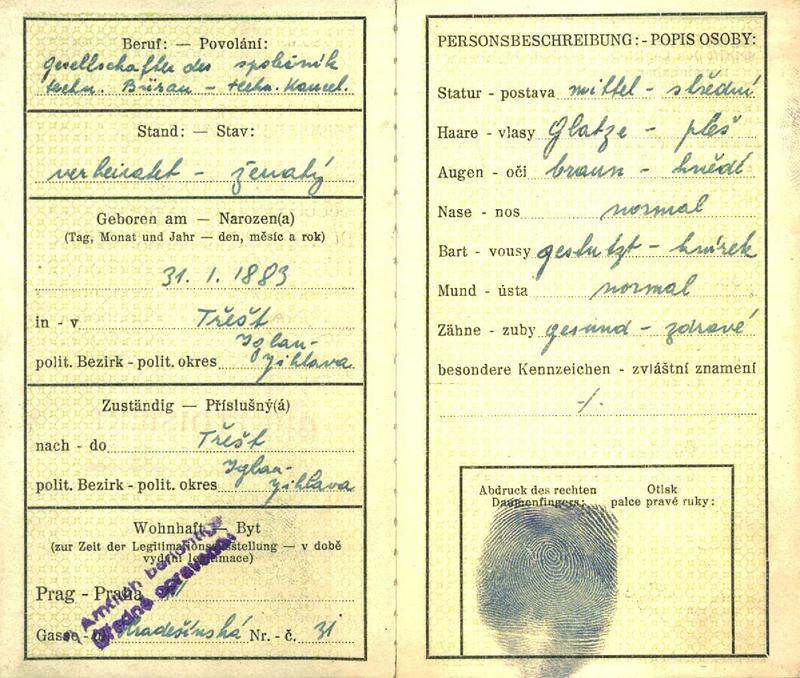 Beruf: — Povolání:
Gesellschafter des společník
techn. Büros – techn. Kancel.
Stand: — Stav:
verheiratet – ženatý
Geboren am — Narozen(a)
(Tag, Monat und Jahr — den, měsíc a rok)
31. 1. 1883
in - v Třešt
Iglau-
polit. Bezirk - polit. okres Jihlava
Zuständig — Příslušný(á)
nach - do Třešt
Iglau-
polit. Bezirk - polit. okres Jihlava
Wohnhaft — Byt
(zur Zeit der Legitimationsausstellung — v době
vydání legitimace)
Prag - Praha
Amtlich berichtigt
Úředně opraveno
Gasse - ul. Hradešínská Nr. - č. 31
PERSONSBESCHREIBUNG: - POPIS OSOBY:
Statur - postava mittel – střední
Haare - vlasy Glatze – pleš
Augen - oči braun – hnědé
Nase - nos normal
Bart - vousy gestutzt – knírek
Mund - ústa normal
Zähne - zuby gesund – zdravé
besondere Kennzeichen - zvláštní znamení
-/-
Abdruck des rechten Otisk
Daumenfingers: palce pravé ruky: